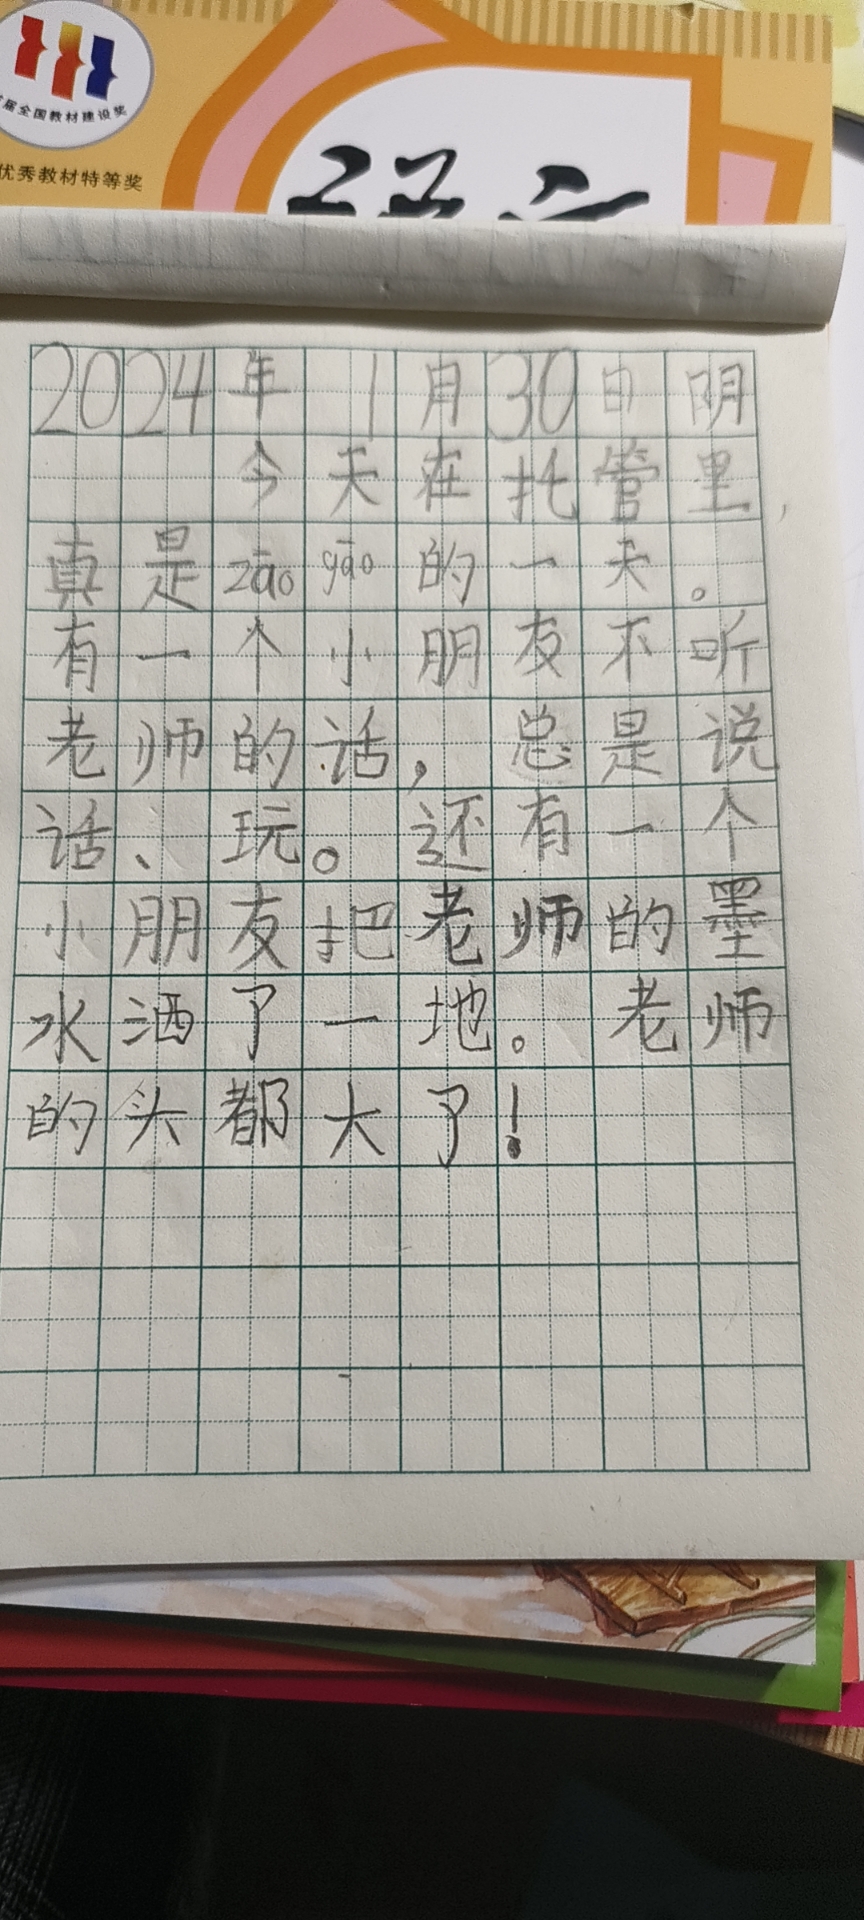 届全国教材建设奖
优秀教材特等奖
2024年1月30日 阴
今天在托管里，
真是zāo gāo的一天。
有一个小朋友不听
老师的话，总是说
话、玩。还有一个
小朋友把老师的墨
水洒了一地。老师
的头都大了！